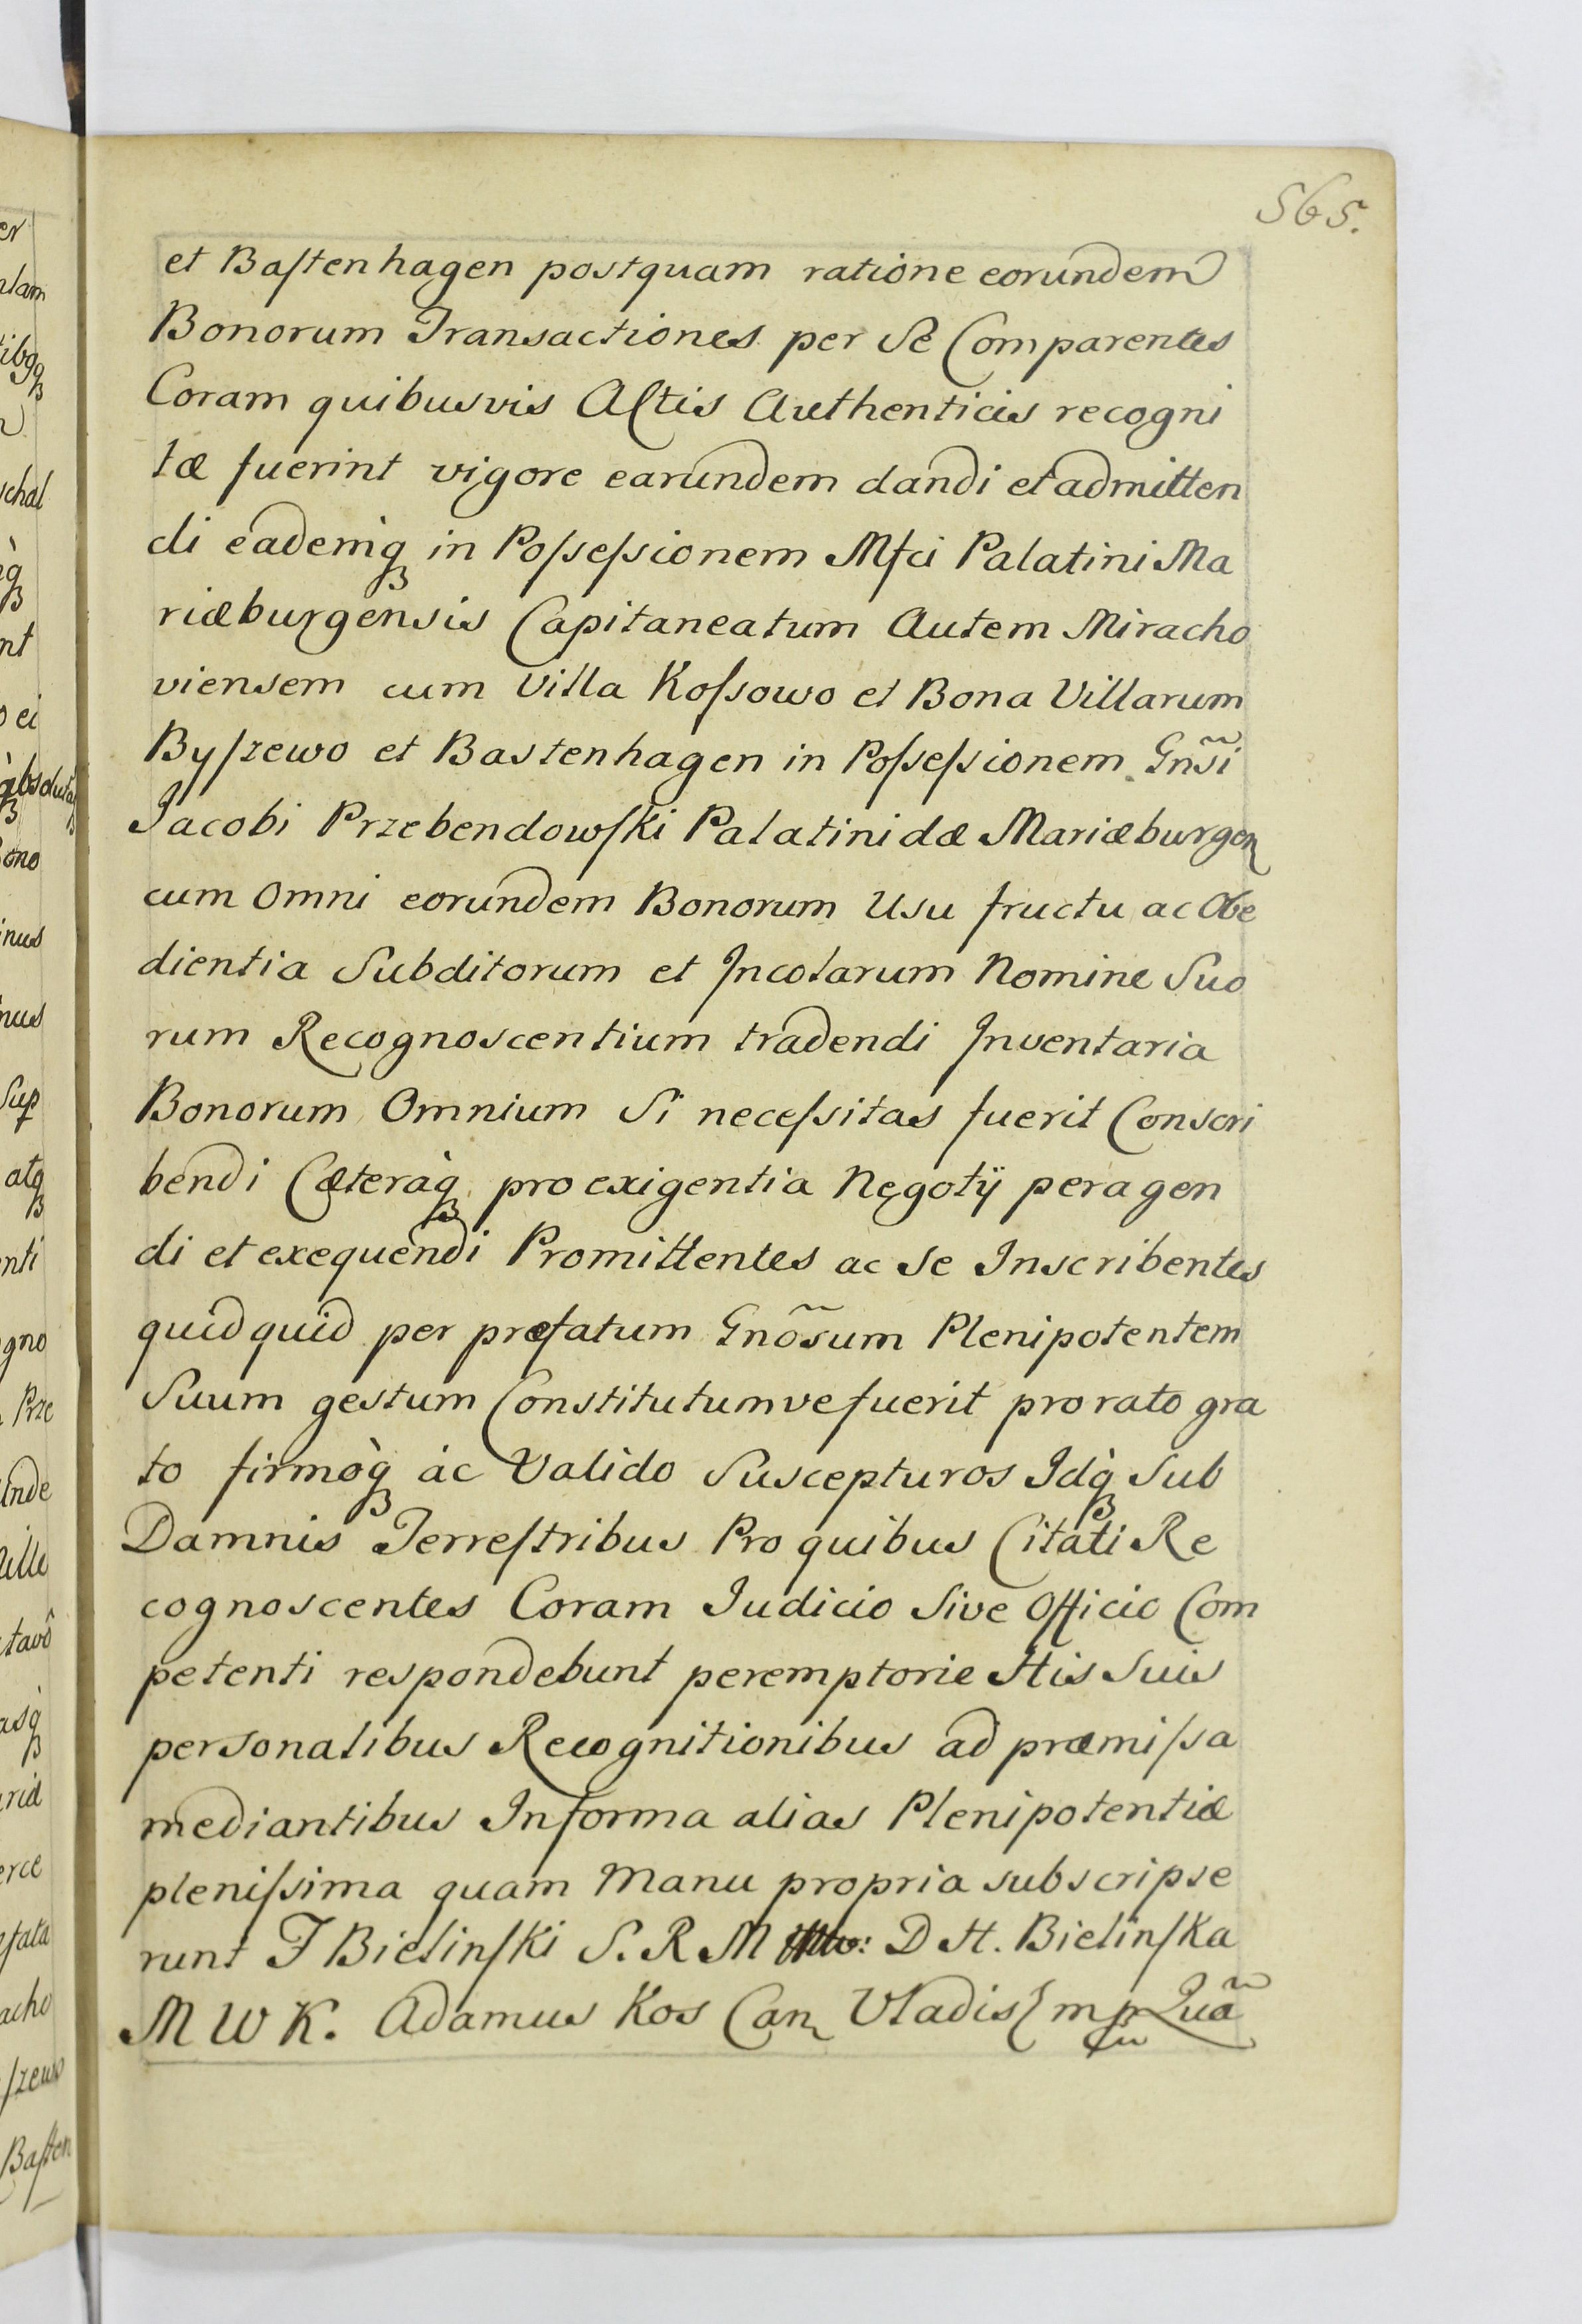 565.
et Baſtenhagen postquam ratione eorundem
Bonorum Transactiones per Se Comparentes
Coram quibusvis Actis Authenticis recogni
tæ fuerint vigore earundem dandi et admitten
di eademq́ꝫ in Poſseſsionem Mfci Palatini Ma
riæburgensis Capitaneatum Autem Miracho
viensem cum Villa Koſsowo et Bona Villarum
Byſzewo et Bastenhagen in Poſseſsionem Gns̃i
Jacobi Przebendowſki Palatinidæ Mariæburgen
cum Omni eorundem Bonorum Usu fructu ac Obe
dientia Subditorum et Incolarum Nomine Suo
rum Recognoscentium tradendi Inventaria
Bonorum Omnium Si neceſsitas fuerit Conscri
bendi Cæteraq́ꝫ pro exigentia Negotÿ peragen
di et exequendi Promittentes ac Se Inscribentes
quidquid per præfatum Gnõsum Plenipotentem
Suum gestum Constitutumve fuerit pro rato gra
to firmoq̀ꝫ ác Valido Suscepturos Idq̀ꝫ Sub
Damnis Terreſtribus Pro quibus Citati Re
cognoscentes Coram Judicio Sive Officio Com
petenti respondebunt peremptorie His Suis
personalibus Recognitionibus ad præmiſsa
mediantibus In forma alias Plenipotentiæ
pleniſsima quam Manu propria subscripse
runt F Bielinſki S. R M D H. Bielinſka
M W K. Adamus Kos Can Vladis mp Quã
er
schal
nt
ei
inus
nus
Sup
atqꝫ
enti
gno
Prze
unde
erce
fata
acho
ſzewo
Baſten